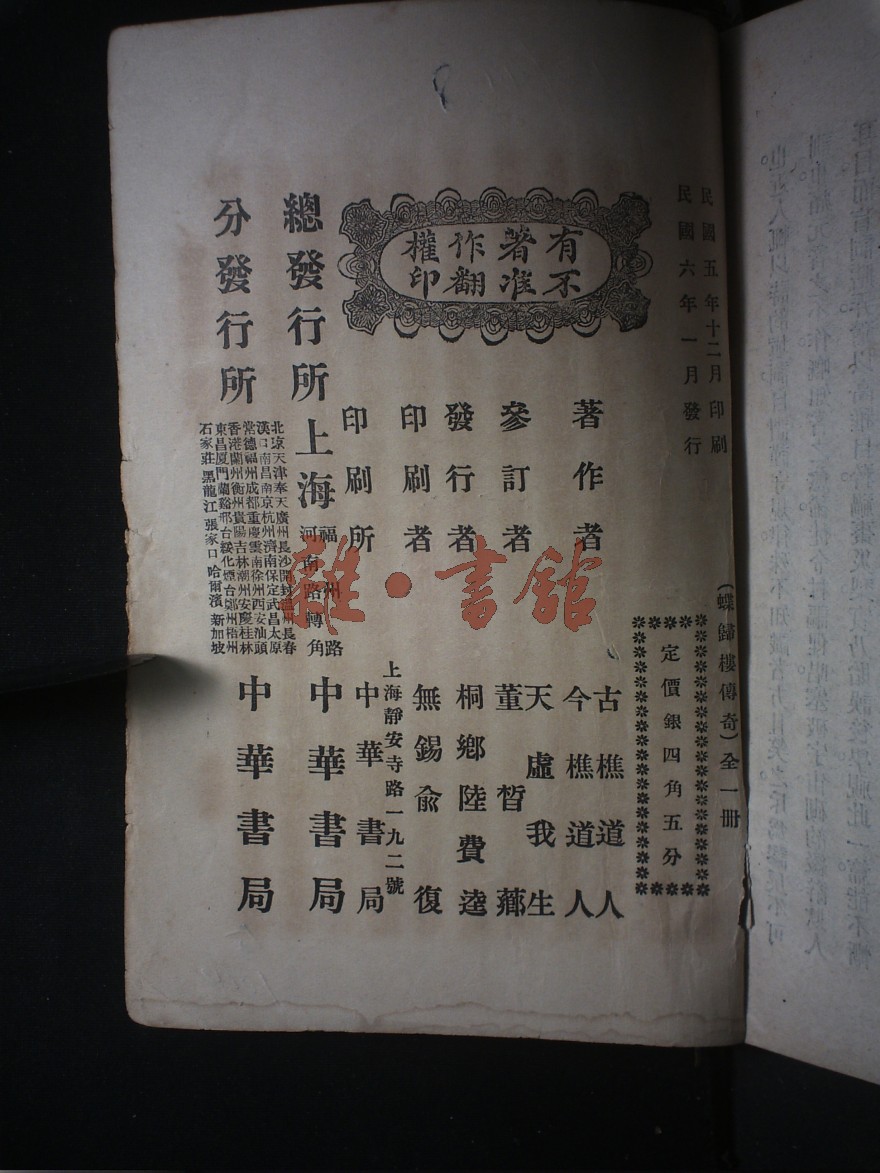 民國五年十二月印刷
民國六年一月發行
（蝶歸樓傳奇）全一冊
定價銀四角五分
有著作權
不准翻印
著作者
古樵道人
今樵道人
參訂者
天虛我生
董皙薌
發行者
桐鄉陸費逵
印刷者
無錫俞復
印刷所
上海靜安寺路一九二號
中華書局
總發行所
上海
福州路
河南路轉角
中華書局
分發行所
北京天津奉天廣州長沙開封溫州長春
漢口南昌南京杭州濟南保定武昌太原
常德福州成都重慶雲南徐州西安汕頭
香港蘭州衡州貴陽吉林潮州安慶桂林
東昌厦門蘭谿邢台綏化煙台鄭州梧州
石家莊 黑龍江 張家口 哈爾濱 新加坡
中華書局
雜·書館